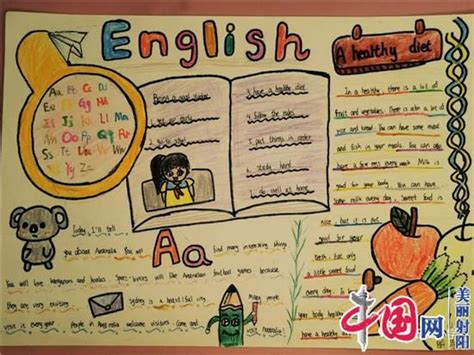 English
A healthy diet
Aa Bb Cc Dd
Ee Ff Gg Hh
Ii Jj Kk Ll
Mm Nn
Oo Pp Qq Rr
Ss Tt Uu Vv
Ww Xx
Yy Zz
Being a good student
1. have a healthy diet
2. follow the rules
3. put things in order
4. study hard
5. do well at home
In a healthy, there is a lot of
fruit and vegetables. There is also a lot of
rice and bread. You can have some meat
and fish in your meals. You can
have a few eggs every week. Milk is
good for your body. You can have some
milk every day. Sweet food is
nice, but it is not
good for your
teeth. Eat only
a little sweet food
every day. To have
a healthy diet.
Today, I'll tell
you about Australia. You will
Aa
find many interesting things
You will love kangaroos and koalas. Sports-lovers will like Australian football games because
they are very exciting
Sydney is a beautiful city
many people
visit it every year. People in Australia welcome visitors. Come and
visit Australia!
中国网
美丽射阳